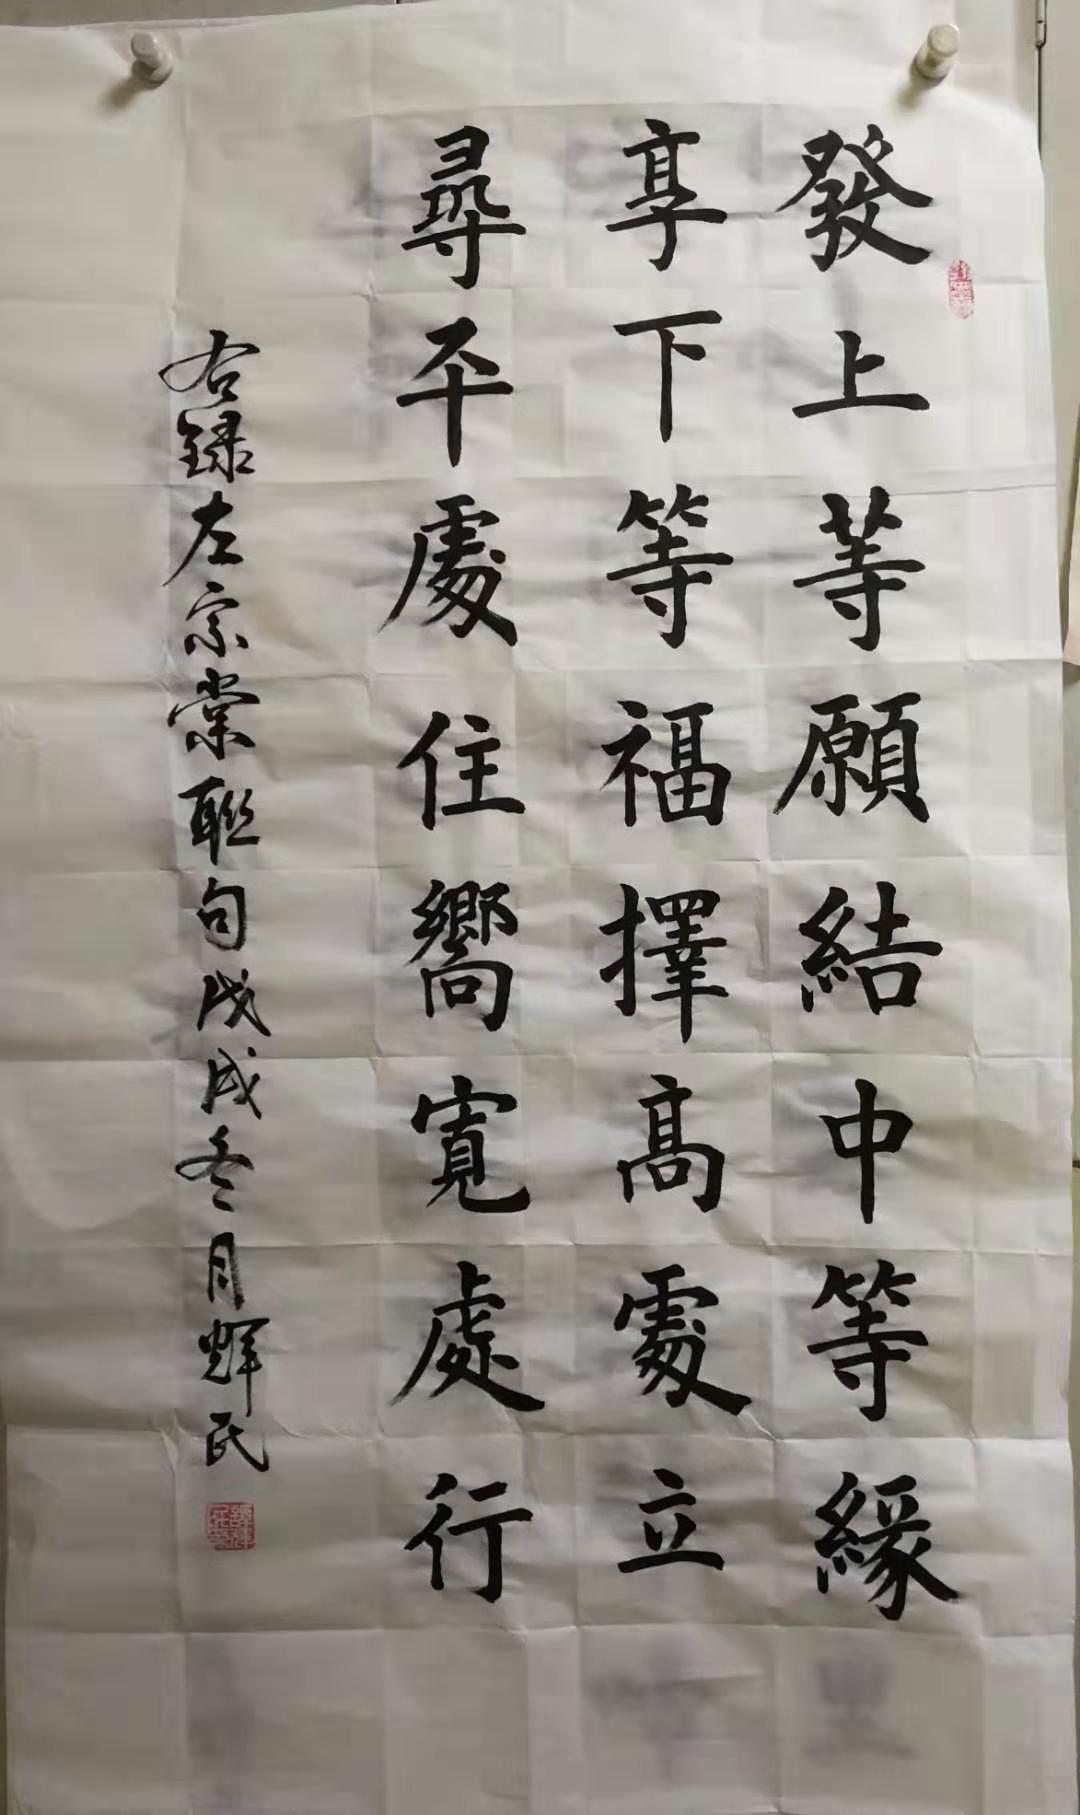 發上等願結中等緣
享下等福擇高處立
尋平處住嚮寬處行
右録左宗棠聯句戊戌冬月輝民